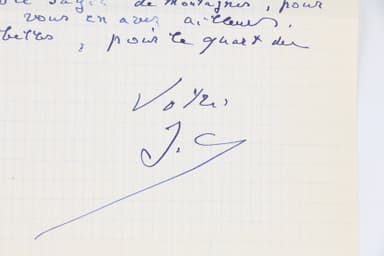 de montagnes, pour
vous en avez ailleurs.
belles, pour le quart de
Votre
J.C